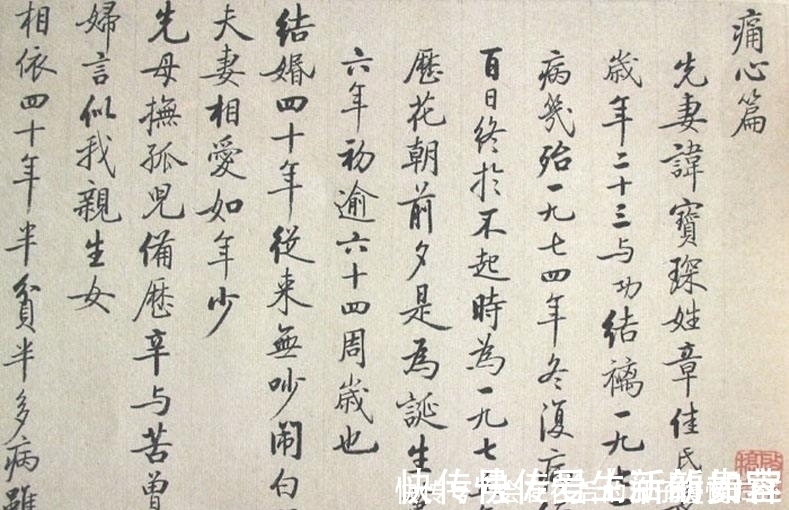 痛心篇
先妻諱寶琛姓章佳氏
歲年二十三与功结褵一九七
病幾殆一九七四年冬復病
百日终於不起時為一九七
歷花朝前夕是為誕生
六年初逾六十四周歲也
结婚四十年從来無吵鬧白
夫妻相愛如年少
先母撫孤兒備歷辛与苦曾
婦言似我親生女
相依四十年半貧半多病雖
快传